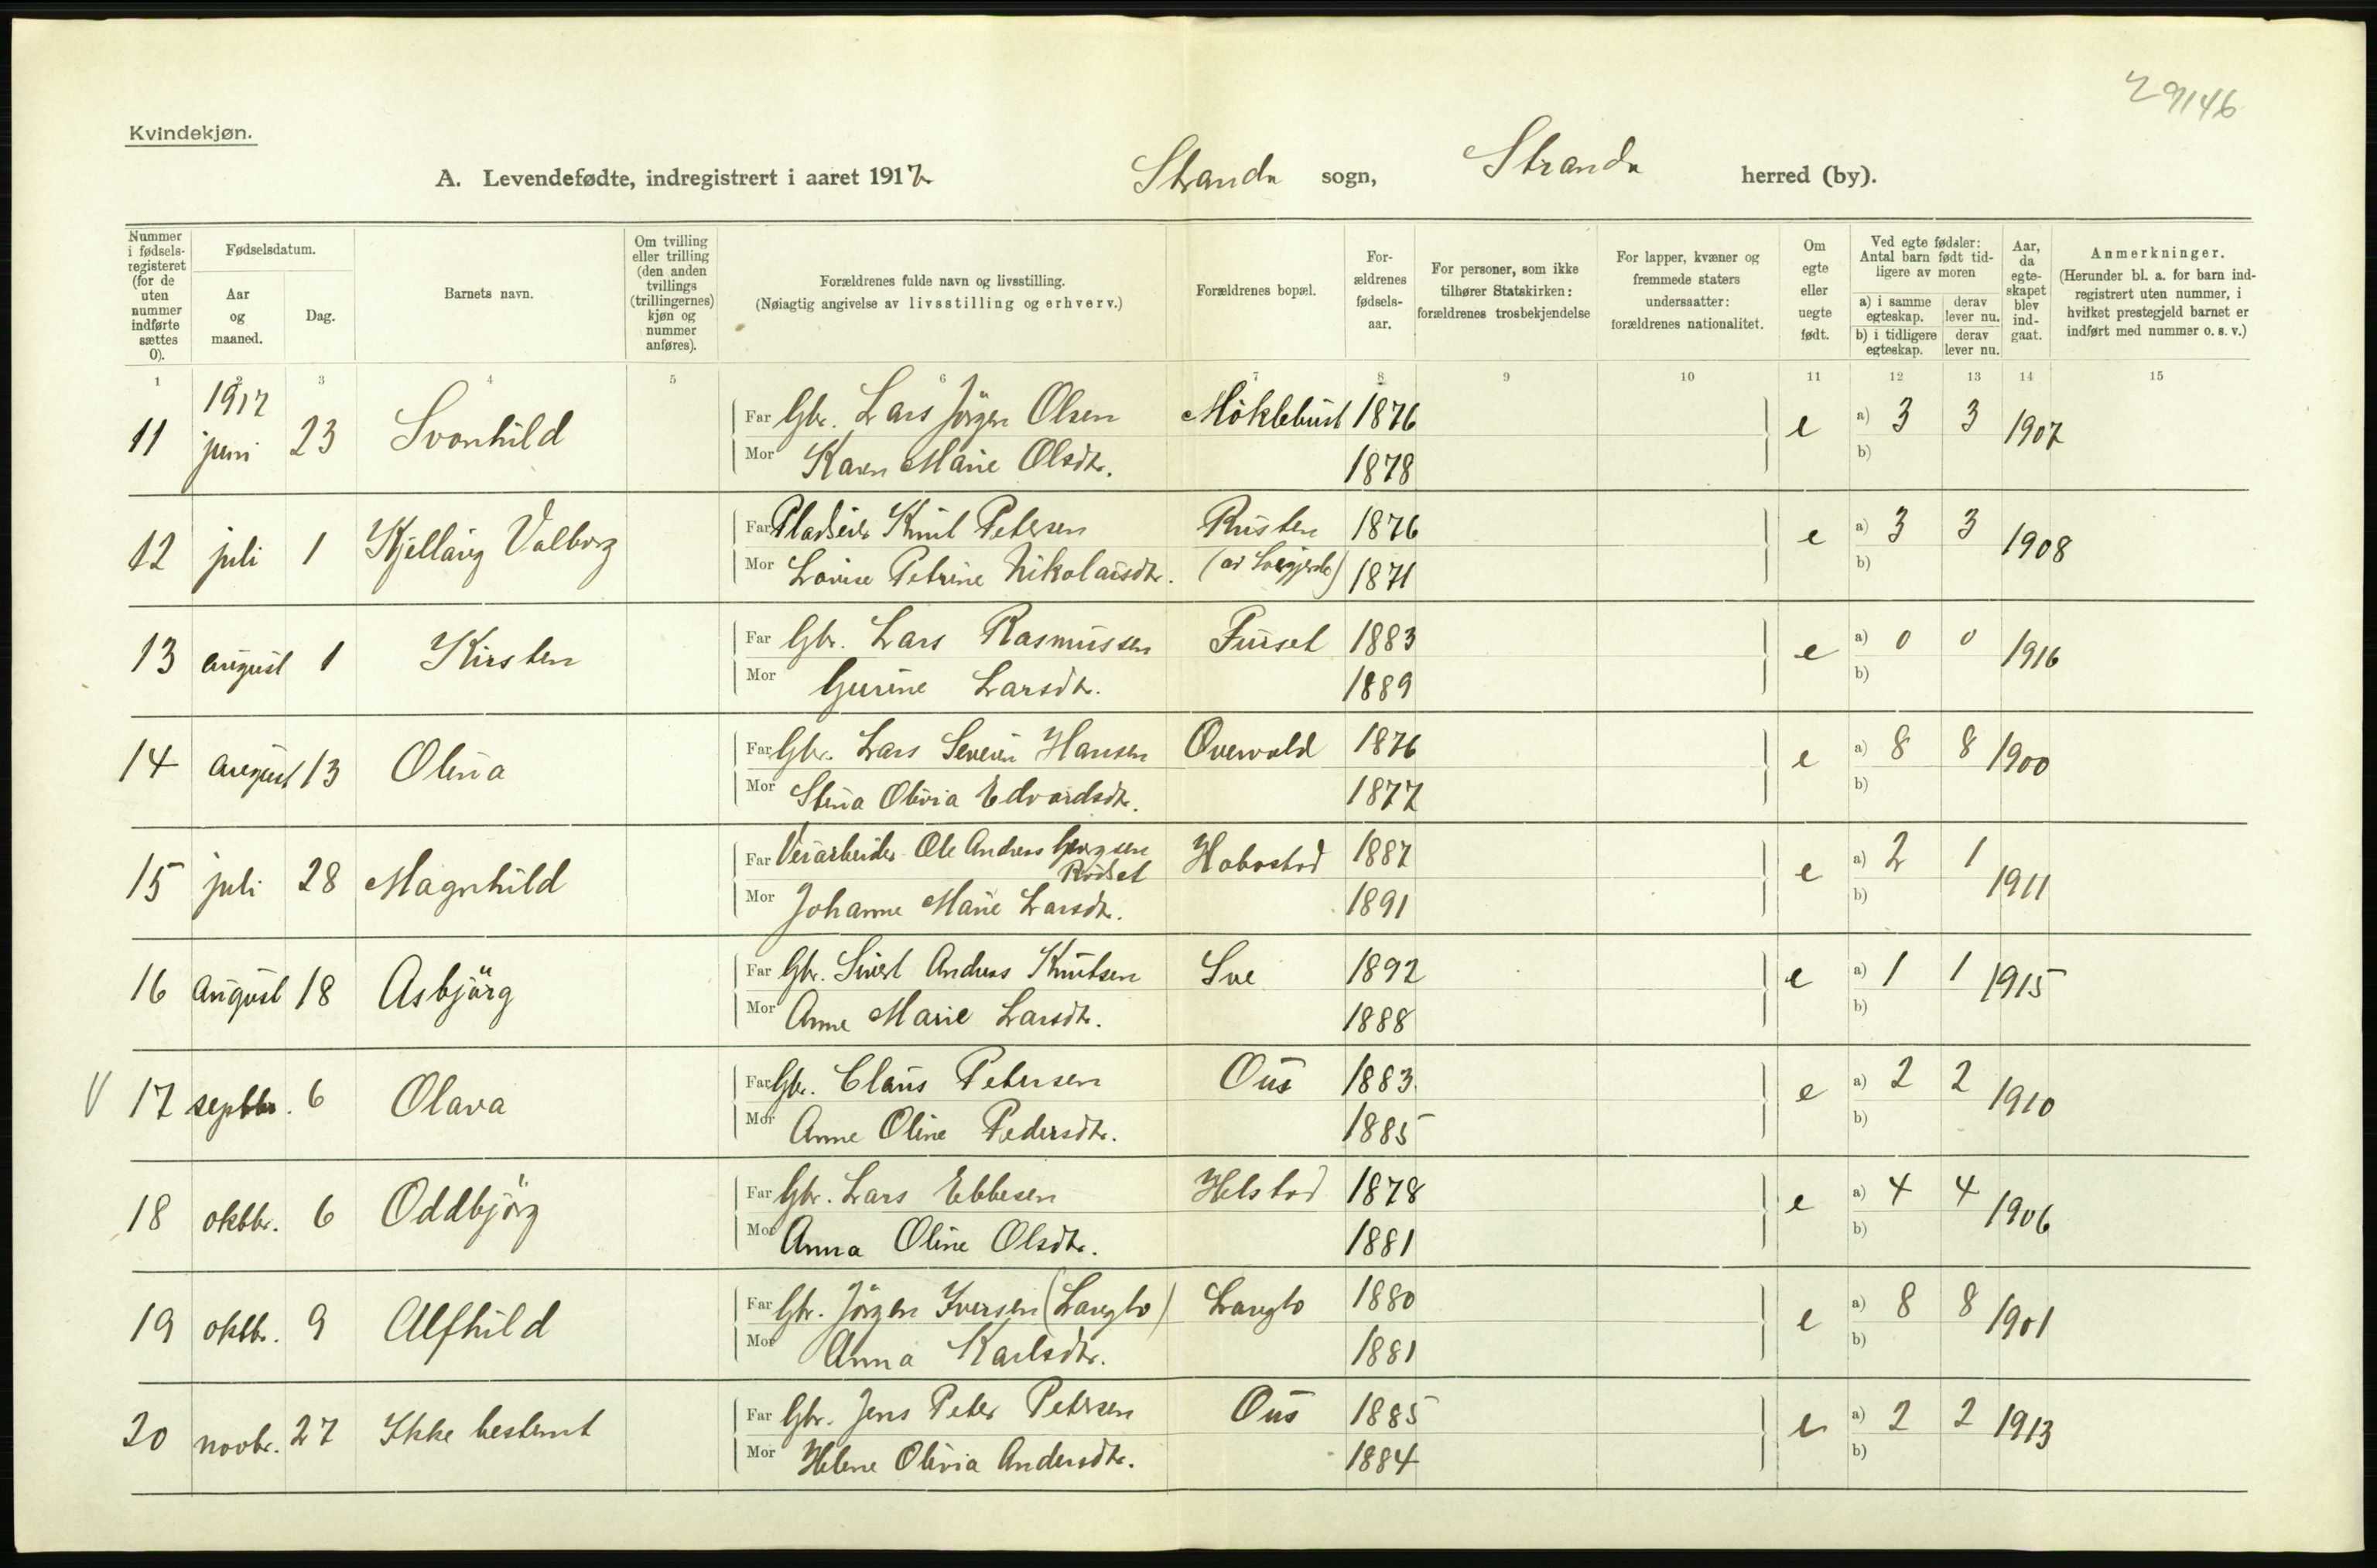 29146
Kvindekjøn.
A. Levendefødte, indregistrert i aaret 1917 Stranda sogn, Stranda herred (by).
Nummer i fødsels-registeret (for de uten nummer indførte sættes 0).
Fødselsdatum.
Aar og maaned.
Dag.
Barnets navn.
Om tvilling eller trilling (den anden tvillings (trillingernes) kjøn og nummer anføres).
Forældrenes fulde navn og livsstilling.
(Nøiagtig angivelse av livsstilling og erhverv.)
Forældrenes bopæl.
For-ældrenes fødsels-aar.
For personer, som ikke tilhører Statskirken: forældrenes trosbekjendelse
For lapper, kvæner og fremmede staters undersaatter: forældrenes nationalitet.
Om egte eller uegte født.
Ved egte fødsler: Antal barn født tid-ligere av moren
a) i samme egteskap. derav lever nu.
b) i tidligere egteskap. derav lever nu.
Aar, da egte-skapet blev ind-gaat.
Anmerkninger.
(Herunder bl. a. for barn ind-registrert uten nummer, i hvilket prestegjeld barnet er indført med nummer o. s. v.)
1 2 3 4 5 6 7 8 9 10 11 12 13 14 15
1917
11 juni 23 Svanhild Far Gbr. Lars Jörgen Olsen Möklebust 1876 e a) 3 3 1907
Mor Karen Marie Olsdtr. 1878 b)
12 juli 1 Kjellaug Valborg Far Pladseier Knut Petersen Rusten 1876 e a) 3 3 1908
Mor Lovise Petrine Nikolaisdtr. 1871 b)
13 august 1 Kirsten Far Gbr. Lars Rasmussen Furset 1883 e a) 0 0 1916
Mor Gurine Larsdtr. 1889 b)
14 august 13 Olina Far Gbr. Lars Severin Hansen Overvold 1876 e a) 8 8 1900
Mor Stina Olivia Edvardsdtr. 1877 b)
15 juli 28 Magnhild Far Veiarbeider Ole Andreas Georgsen Rödset Haavstad 1887 e a) 2 1 1911
Mor Johanne Marie Larsdtr. 1891 b)
16 August 18 Asbjörg Far Gbr. Sivert Andreas Knutsen Sve 1892 e a) 1 1 1915
Mor Anne Marie Larsdtr. 1888 b)
V 17 septbr. 6 Olava Far Gbr. Claus Petersen Ous 1883 e a) 2 2 1910
Mor Anne Oline Pedersdtr. 1885 b)
18 oktbr. 6 Oddbjörg Far Gbr. Lars Ebbesen Helstad 1878 e a) 4 4 1906
Mor Anna Oline Olsdtr. 1881 b)
19 oktbr. 9 Alfhild Far Gbr. Jörgen Iversen (Langlo) Langlo 1880 e a) 8 8 1901
Mor Anna Karlsdtr. 1881 b)
20 novbr. 27 Ikke bestemt Far Gbr. Jens Peter Petersen Ous 1885 e a) 2 2 1913
Mor Helene Olivia Andersdtr. 1884 b)